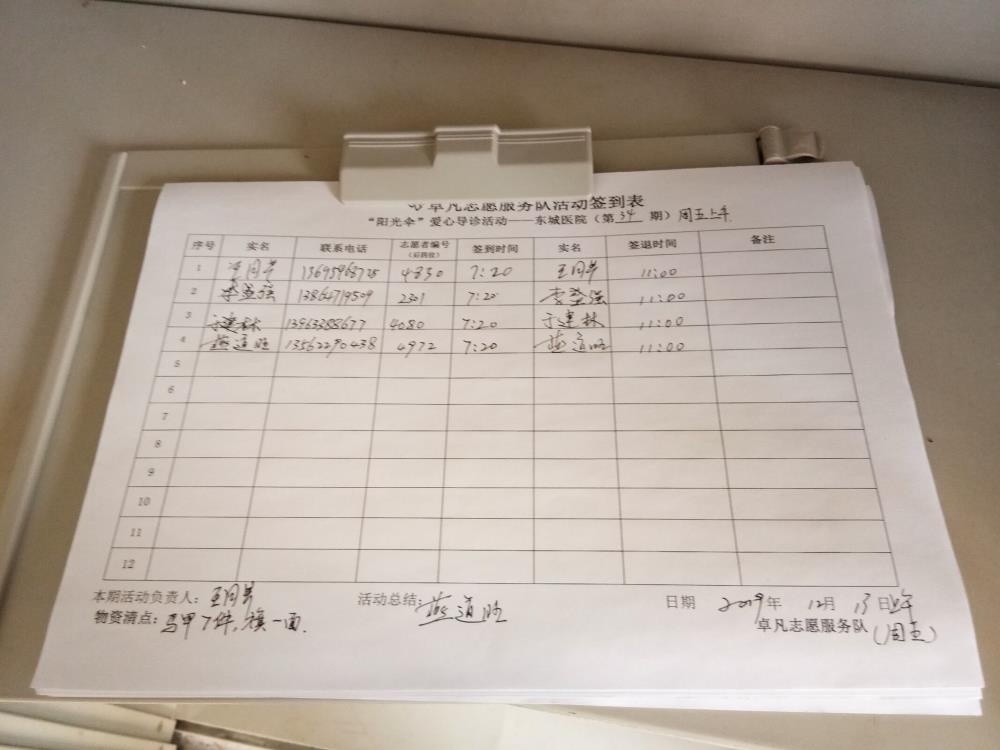 卓凡志愿服务队活动签到表
“阳光伞”爱心导诊活动——东城医院（第34期）周五上午
序号 实名 联系电话 志愿者编号（后四位） 签到时间 实名 签退时间 备注
1 王同芹 13695968725 4830 7:20 王同芹 11:00
2 李登强 13864719509 2301 7:20 李登强 11:00
3 于建林 13963388677 4080 7:20 于建林 11:00
4 燕道旺 13562290438 4972 7:20 燕道旺 11:00
5
6
7
8
9
10
11
12
本期活动负责人：王同芹 活动总结：燕道旺 日期 2019年 12月 13日上午
物资清点：马甲7件，旗一面. 卓凡志愿服务队（周五）